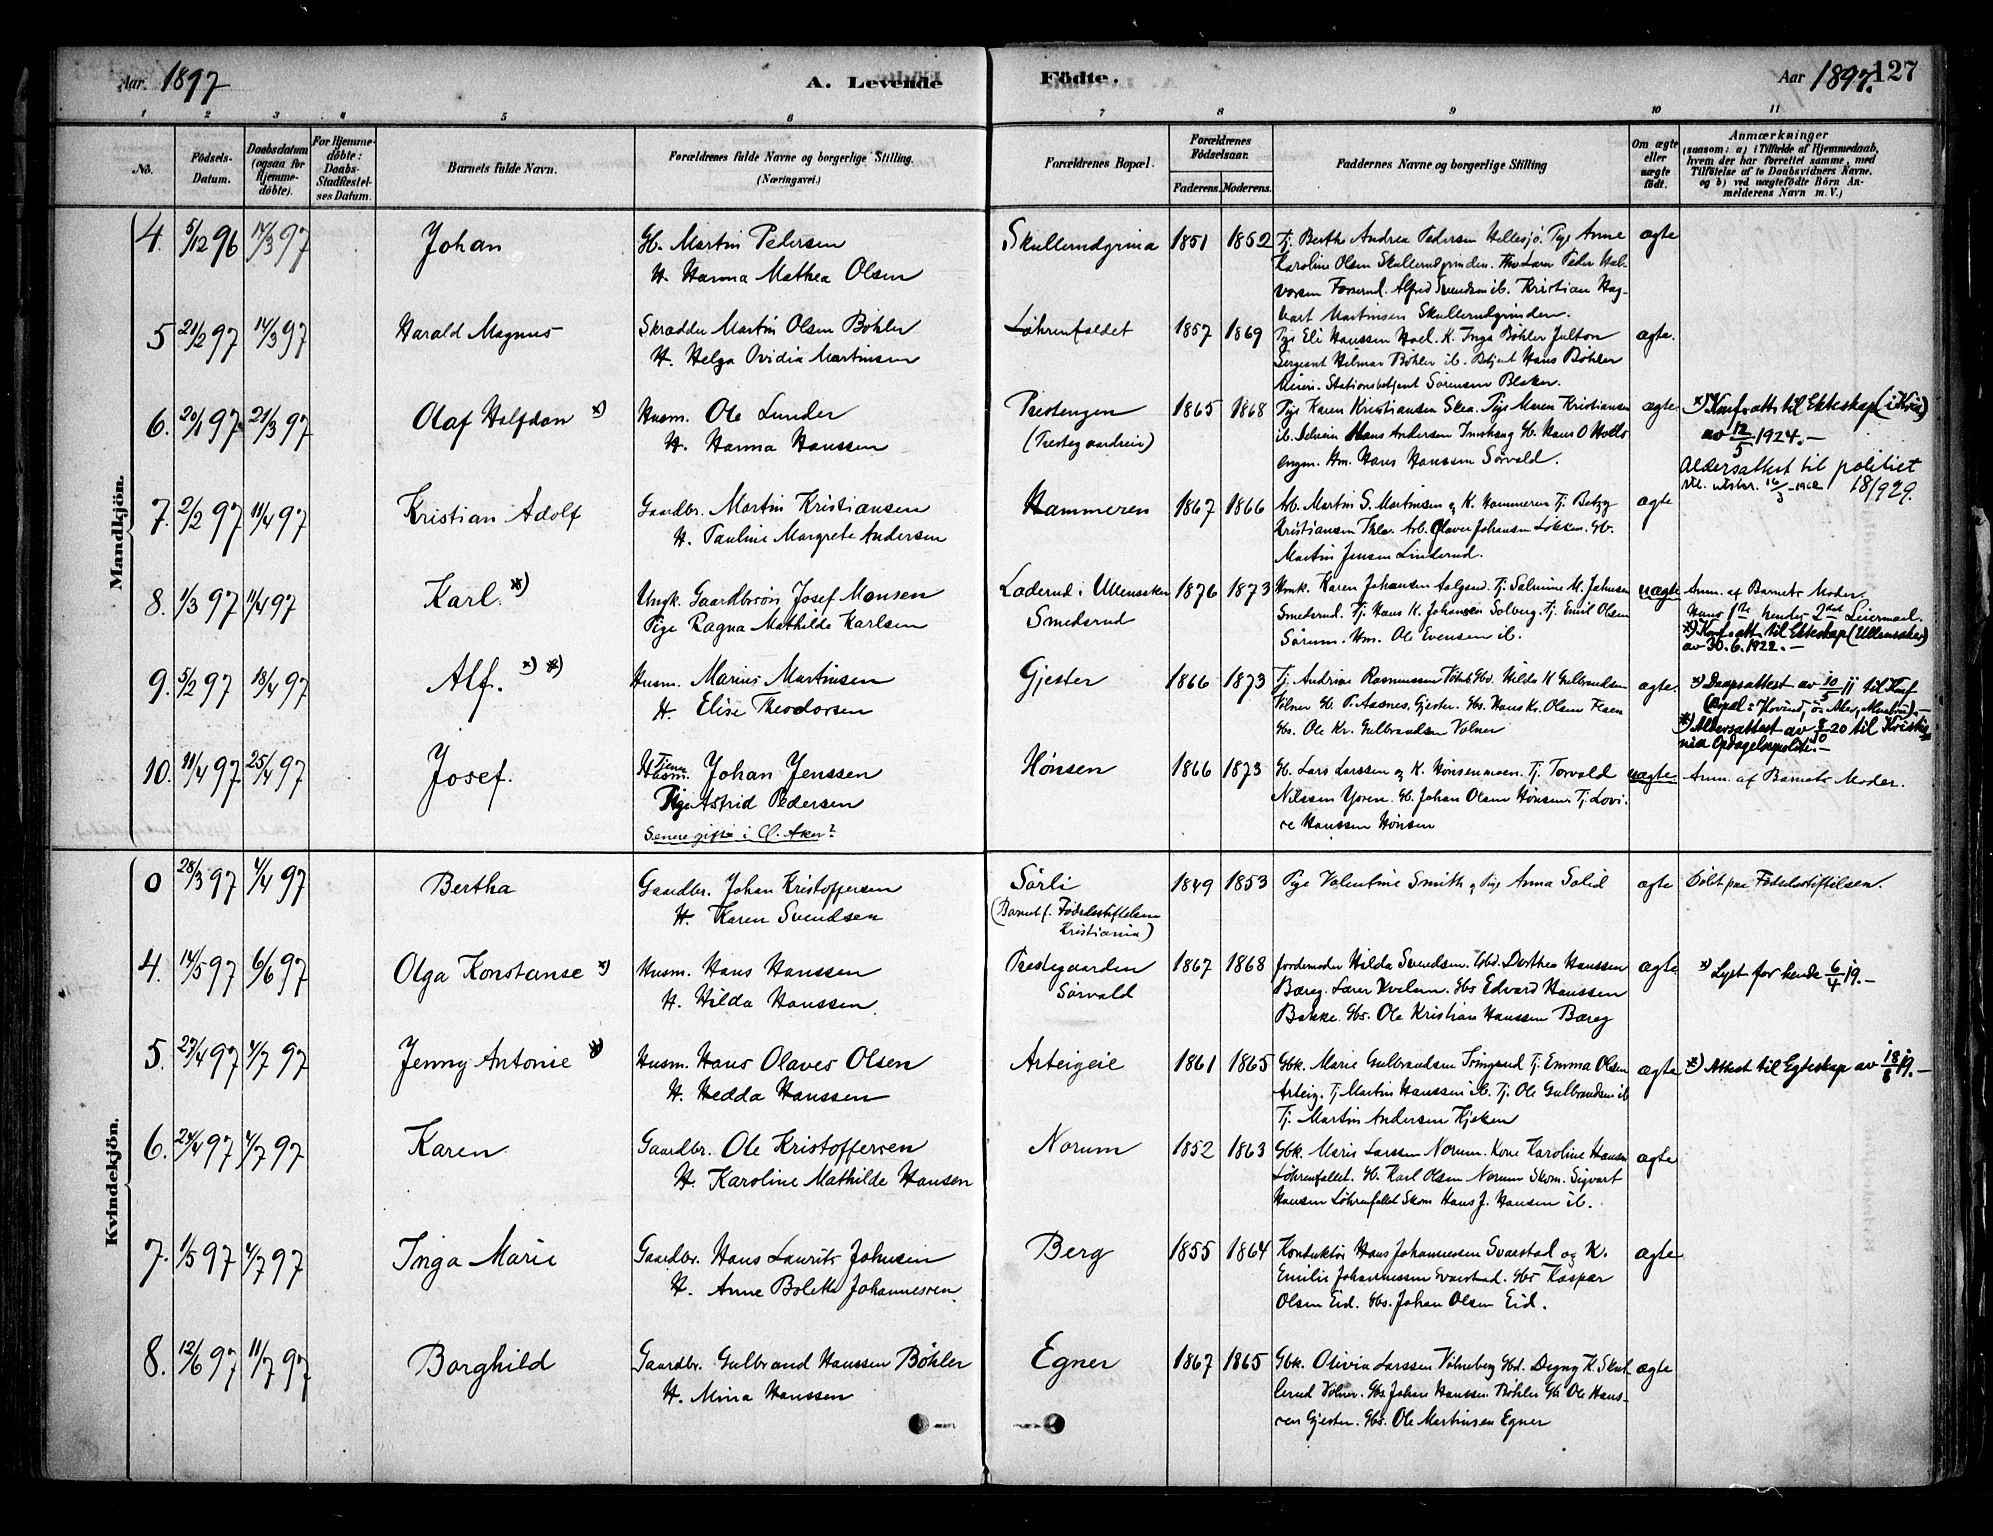 Aar 1897 A. Levende
Födte. Aar 1897. 127
1 2 3 4 5 6 7 8 9 10 11
No.
Födsels-Datum.
Daabsdatum (ogsaa for Hjemme-döbte).
For Hjemme-döbte: Daabs-Stadfæstel-ses Datum.
Barnets fulde Navn.
Forældrenes fulde Navne og borgerlige Stilling. (Næringsvei.)
Forældrenes Bopæl.
Forældrenes Födselsaar.
Faderens. Moderens.
Faddernes Navne og borgerlige Stilling
Om ægte eller uægte födt.
Anmærkninger
(saasom: a) i Tilfælde af Hjemmedaab,
hvem der har forrettet samme, med
Tilföielse af to Daabsvidners Navne.
og b) ved uægtefödte Börn An-
melderens Navn m. V.)
Mandkjön.
4. 5/12 96 14/3 97 Johan Gb. Martin Pedersen Skullerudgrina 1851 1852 Tj. Berthe Andrea Pedersen Hellesjö. Pige Anne ægte
H. Hanna Mathea Olsen Karoline Olsen Skullerudgrinden. Peder Hal-
vorsen Fosserud. Alfred Svendsen ib. Kristian Hag-
bart Martinsen Skullerudgrinden.
5 21/2 97 14/3 97 Harald Magnus Skrædder Martin Olsen Böhler Löhrenfaldet 1857 1869 Pige Eli Hanssen Hoel. K. Inga Böhler Julton ægte.
H. Helga Ovidia Martinsen Sergeant Hilmar Böhler ib. Betjent Hans Böhler
Stationsbetjent Sörensen Blaker.
6. 20/1 97 21/3 97 Olaf Halfdan x) Husm. Ole Lunder Prestengen 1865 1868 Pige Karen Kristiansen Skea. Pige Maren Kristiansen ægte x) Konf.att. til Ekteskap (i Kria)
H. Hanna Hanssen (Prestegaardseie) ib. Hans Andersen Gb. Hans O
Hm. Hans Hanssen Sörvald.
av 12/5 1924.-
Aldersattest til politiet
18/9 29.
7. 2/2 97 11/4 97 Kristian Adolf Gaardbr. Martin Kristiansen Hammeren 1867 1866 Arb. Martin S. Martinsen og K. Hammeren Tj. Betzy ægte
H. Pauline Margrete Andersen Kristiansen Arb. Olaves Johansen Lökken. Gb.
Martin Jensen Linderud.
8. 1/3 97 11/4 97 Karl. x) Ungk. Gaardbrsön Josef Monsen Laderud i Ullensaker 1876 1873 Hmk. Karen Johansen Aalgaard. Tj. Salmine M. Johnsen uægte Anm. af Barnets Moder.
Pige Ragna Mathilde Karlsen Smedsrud Smedsrud. Tj. Hans K. Johansen Solberg. Tj. Emil Olsen
Sörum. Hm. Ole Evensen ib.
Hans 1ste hendes 2det Leiermaal.
x) Konf.att. til Ekteskap (Ullensaker)
av 30.6.1922.-
9. 5/2 97 18/4 97 Alf. x) x) Husm. Marius Martinsen Gjester 1866 1873 Tj. Andrine Rasmussen Hilda K Gulbrandsen ægte. x) Daapsattest av 10/5 11 til Konf
H. Elise Theodorsen Völner Gb. P. Aasnes, Gjester. Gbs. Hans Kr. Olsen
Gbs. Ole Kr. Gulbrandsen Volner
x) Aldersattest av 8/10 20 til Kristia-
nia Opdagelsespoliti.-
10. 11/4 97 25/4 97 Josef. Tjener Johan Jenssen Hönsen 1866 1873 Gb. Lars Larssen og K. Hönsenmoen. Tj. Torvald uægte Anm. af Barnets Moder.
Pige Astrid Pedersen Nilssen Gb. Johan Olsen Hönsen Tj. Lovi-
se Hanssen Hönsen
Senere gifte i Ö. Aker?
Kvindekjön.
0 28/3 97 4/4 97 Bertha Gaardbr. Johan Kristoffersen Sörli 1849 1853 Pige Valentine Smith og Pige Anna Solid ægte Döbt paa Födselsstiftelsen.
H. Karen Svendsen (Barnet f. Födselsstiftelsen
Kristiania)
4. 14/5 97 6/6 97 Olga Konstanse x) Husm. Hans Hanssen Prestegaarden 1867 1868 Jordemoder Hilda Svendsen. Gbd. Dorthea Hanssen ægte x) Lyst for hende 6/4 19.-
H. Hilda Hanssen Sörvald Bæreg. Lærer Gbs Edvard Hanssen
Bakke. Gbs. Ole Kristian Hanssen Bæreg
5. 27/4 97 4/7 97 Jenny Antonie x) Husm. Hans Olaves Olsen Arteigeie 1861 1865 Gbk. Marie Gulbrandsen Tj. Emma Olsen ægte x) Attest til Egteskap av 18/8 19.-
H. Hedda Hanssen Arteig. Tj. Martin Hanssen ib. Tj. Ole Gulbrandsen ib
Tj. Martin Andersen Kjöken
6. 24/4 97 4/7 97 Karen Gaardbr. Ole Kristoffersen Norum 1852 1863 Gbk. Maris Larssen Norum. Kone Karoline Hansen ægte
H. Karoline Mathilde Hansen Löhrenfallet. Gb. Karl Olsen Norum Skom. Sigvart
Hansen Löhrenfallet Skom Hans J. Hansen ib.
7. 1/5 97 4/7 97 Inga Marie Gaardbr. Hans Laurits Johnsen Berg 1855 1864 Konduktör Hans Johannessen Svarstad og K. ægte
H. Anne Bolette Johannessen Emilie Johannessen Svarstad. Gbs Kaspar
Olsen Eid. Gbs. Johan Olsen Eid.
8. 12/6 97 11/7 97 Borghild Gaardbr. Gulbrand Hanssen Böhler Egner 1867 1865 Gbk. Olivia Larssen Völneberg Gbd. Dagny K. Skul- ægte
H. Mina Hanssen lerud Volner. Gbs Johan Hanssen Böhler Gb Ole Hans-
sen Gjester. Gbs. Ole Martinsen Egner